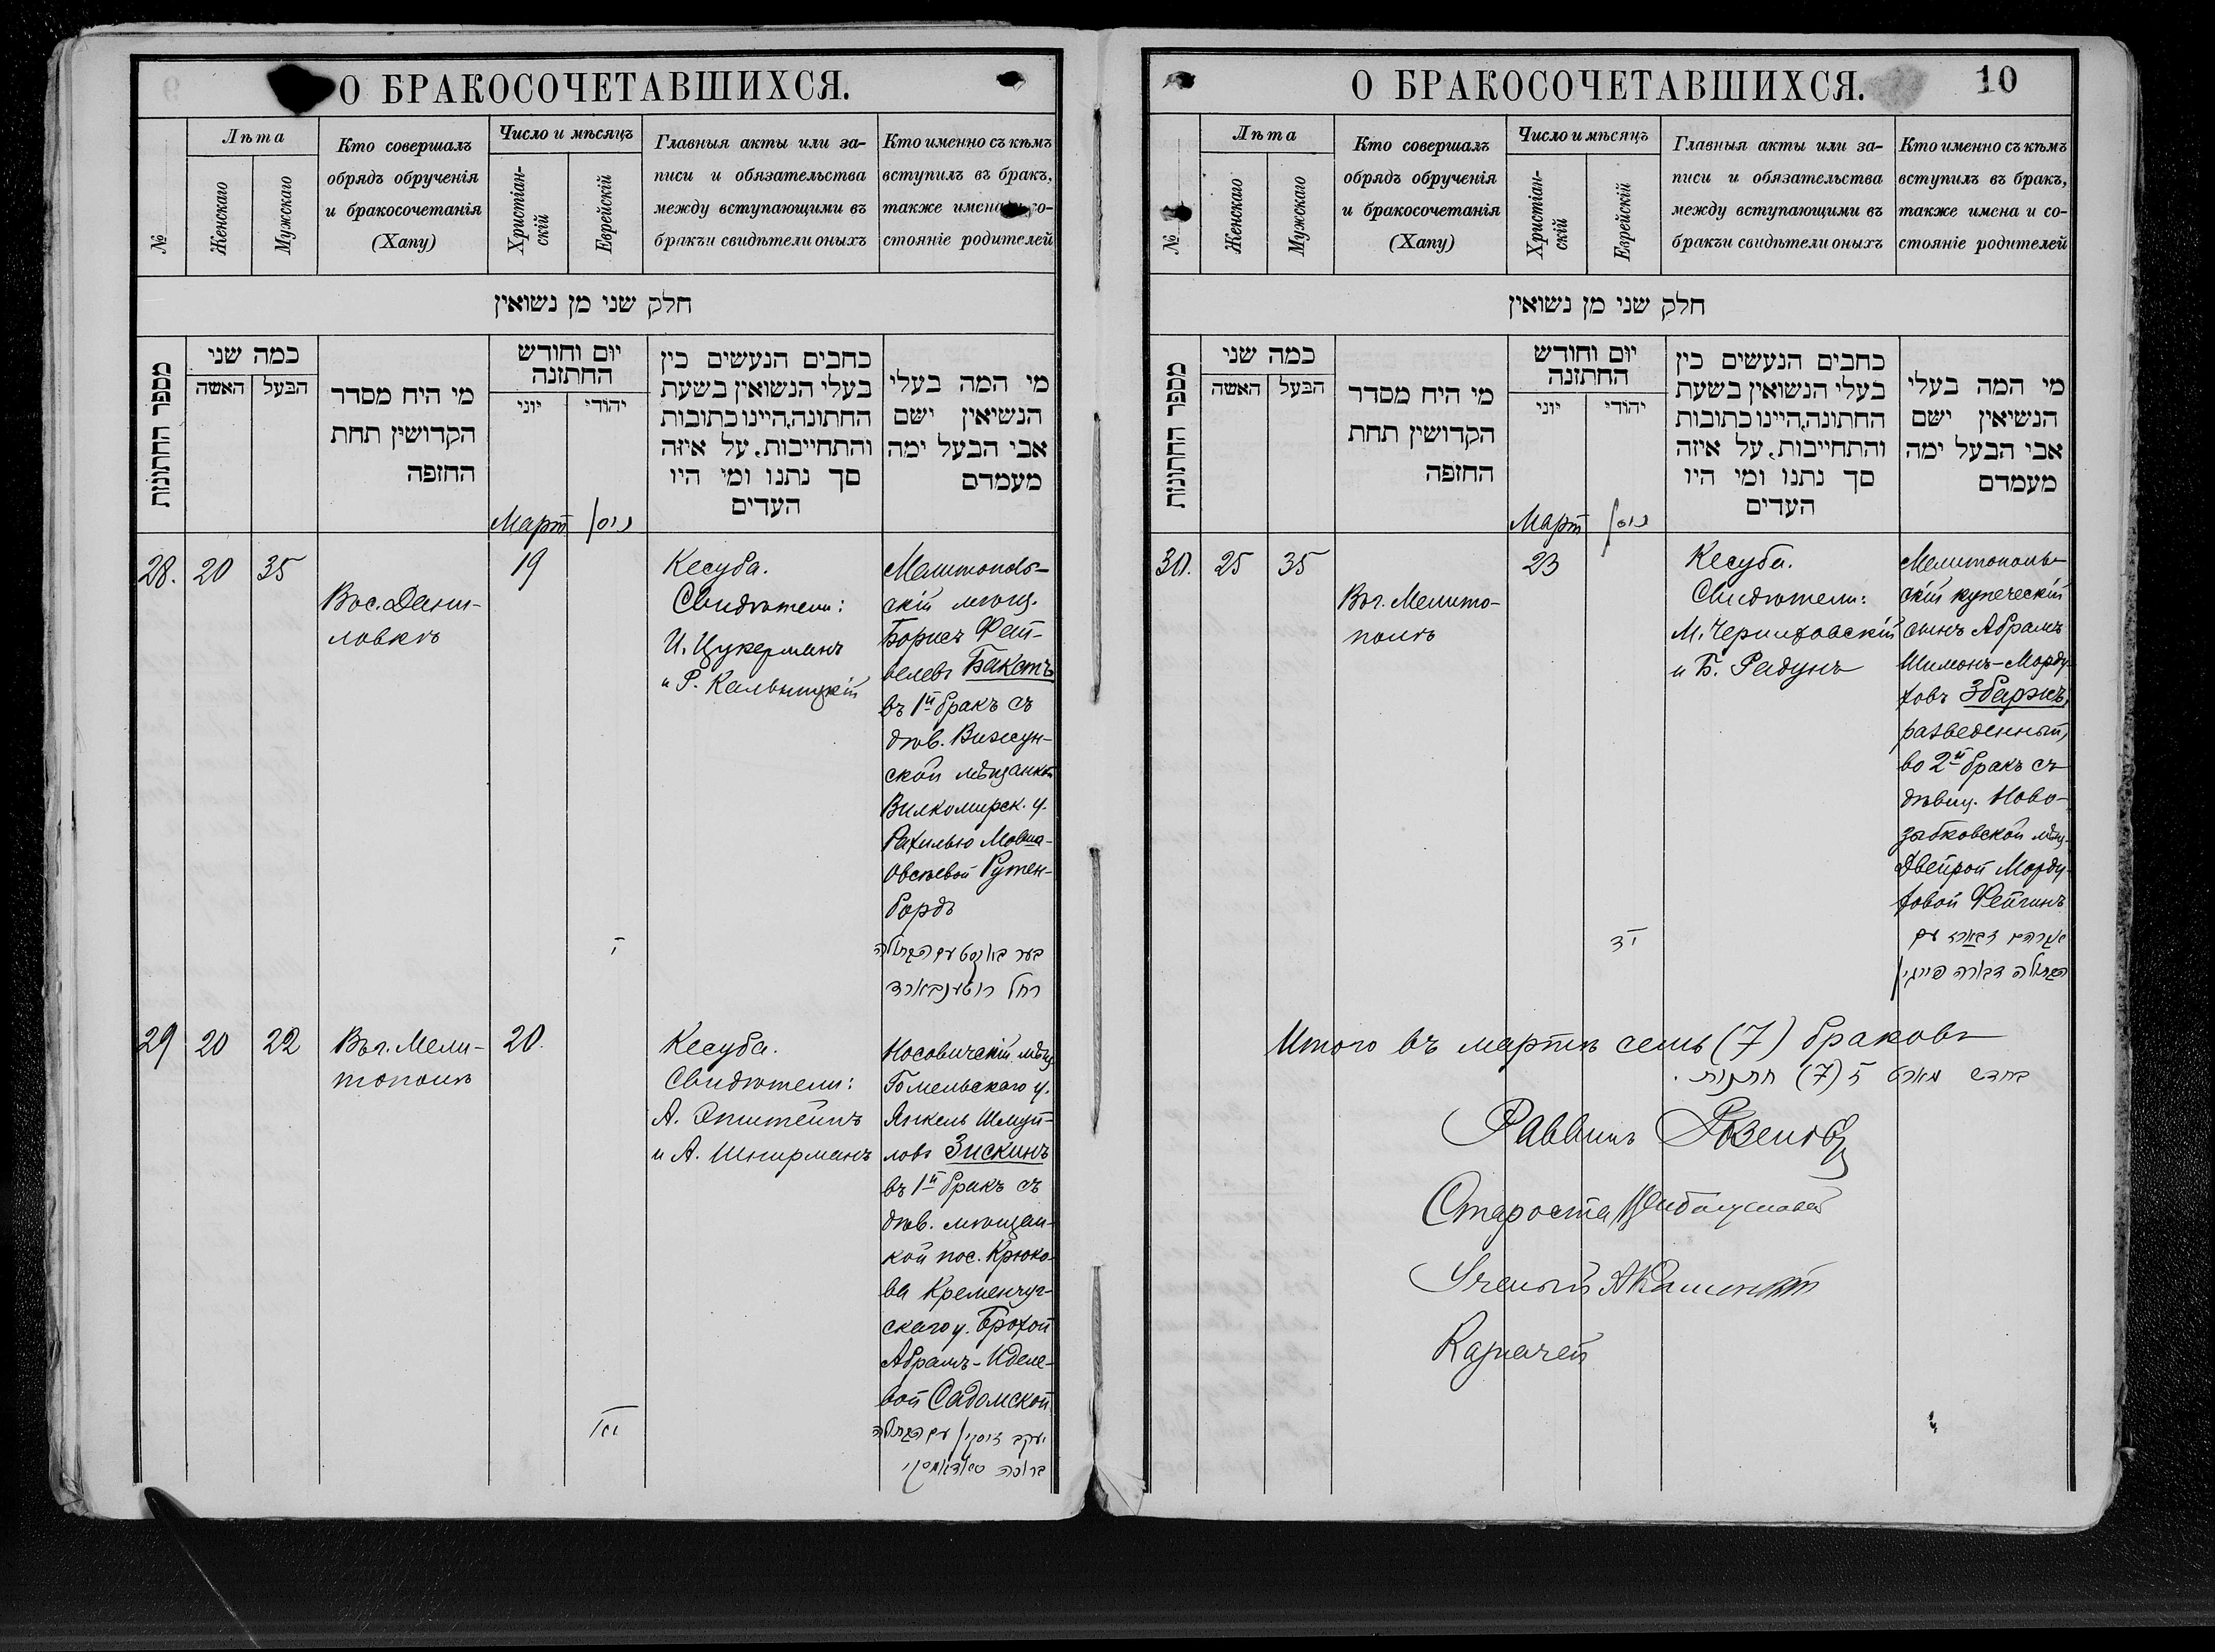 О БРАКОСОЧЕТАВШИХСЯ.
№
Лѣта
Женскаго
Мужскаго
Кто совершалъ
обрядъ обрученія
и бракосочетанія
(Хапу)
Число и мѣсяцъ
Христіан-
скій
Еврейскій
Главныя акты или за-
писи и обязательства
между вступающими въ
бракъ и свидѣтели оныхъ
Кто именно съ кѣмъ
вступилъ въ бракъ,
также имена и со-
стояніе родителей
חלק שני מן נשואין
מספר החתונות
כמה שני
האשה
הבעל
מי היח מסדר
הקדושין תחת
החופה
יום וחודש
החתונה
יוני
יהודי
כתבים הנעשים בין
בעלי הנשואין בשעת
החתונה, היינו כתובות
והתחייבות, על איזה
סך נתנו ומי היו
העדים
מי המה בעלי
הנשיאין ישם
אבי הבעל ימה
מעמדם
Мартъ
ניסן
28.
20
35
Въ с. Дани-
ловкѣ
19
ו
Кесуба.
Свидѣтели:
И. Цукерманъ
и Р.
Мелитополь-
скій мѣщ.
Борисъ Фай-
велевъ Бакстъ
въ 1й бракъ съ
дѣв. Вижун-
ской мѣщанкой
Вилкомирск. у.
Рахилью Мовша-
Овсѣевой Рутен-
бордъ
בער באקסט עם הבתולה
רחל רוטענבארד
29
20
22
Въ г. Мели-
тополѣ
20.
Кесуба.
Свидѣтели:
А. Эпштейнъ
и А. Шнирманъ
Носовичскій мѣщ.
Гомельскаго у.
Янкель Шмуй-
ловъ Зискинъ
въ 1й бракъ съ
дѣв. мѣщан-
кой пос. Крюко-
ва Кременчуг-
скаго у. Брохой
Абрамъ-Иделе-
вой Садомской
יעקב זיסקין עם הבתולה
ברוכה סאדאמסקי
О БРАКОСОЧЕТАВШИХСЯ.
10
№
Лѣта
Женскаго
Мужскаго
Кто совершалъ
обрядъ обрученія
и бракосочетанія
(Хапу)
Число и мѣсяцъ
Христіан-
скій
Еврейскій
Главныя акты или за-
писи и обязательства
между вступающими въ
бракъ и свидѣтели оныхъ
Кто именно съ кѣмъ
вступилъ въ бракъ,
также имена и со-
стояніе родителей
חלק שני מן נשואין
מספר החתונות
כמה שני
האשה
הבעל
מי היח מסדר
הקדושין תחת
החופה
יום וחודש
החתונה
יוני
יהודי
כתבים הנעשים בין
בעלי הנשואין בשעת
החתונה, היינו כתובות
והתחייבות, על איזה
סך נתנו ומי היו
העדים
מי המה בעלי
הנשיאין ישם
אבי הבעל ימה
מעמדם
Мартъ
ניסן
30.
25
35
Въ г. Мелито-
полѣ
23
Кесуба.
Свидѣтели:
М. Чериховскій
и Б. Радунъ
Мелитополь-
скій купеческій
сынъ Абрамъ
Шимонъ-Морду-
ховъ Збаржъ,
разведенный,
во 2й бракъ съ
дѣвиц. Ново-
зыбковской мѣщ.
Двейрой Морду-
ховой Фейгинъ
אברהם זבארז עם
הבתולה דבורה פייגין
Итого въ мартѣ семь (7) браковъ
בחדש מארט ז (7) חתונות.
Раввинъ
Староста
Ученый
Казначей